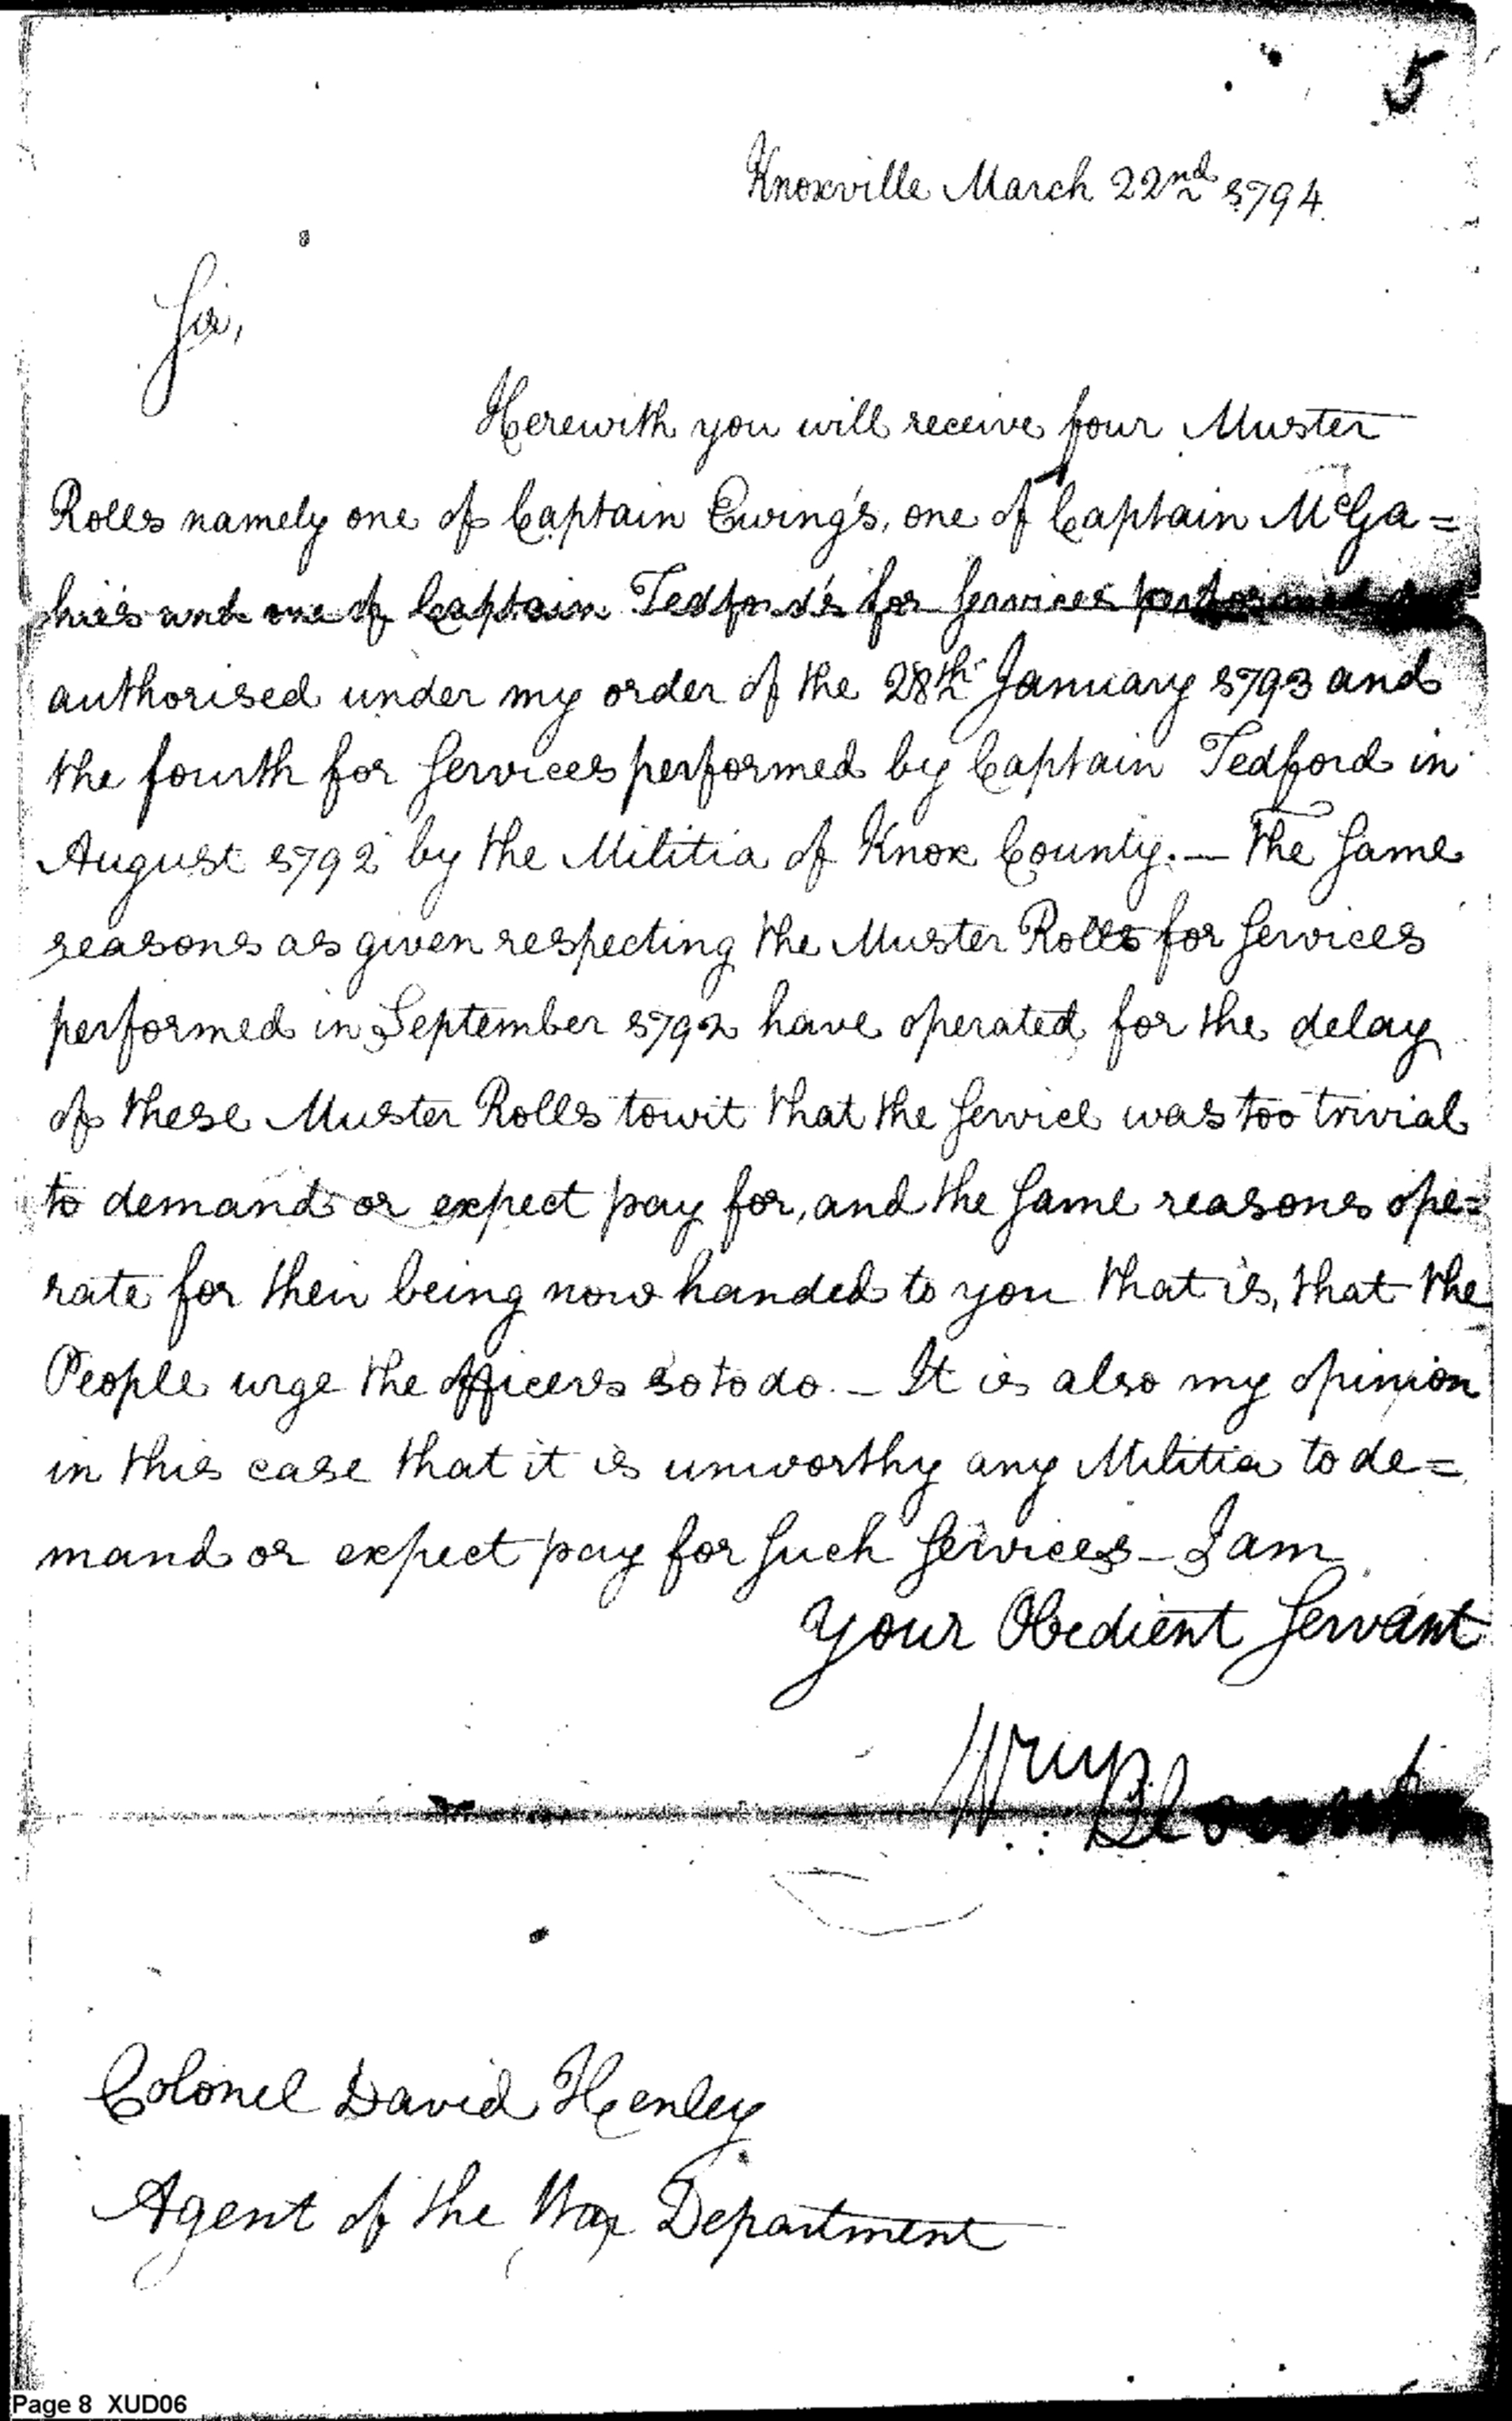 5
Knoxville March 22nd 1794.
Sir,
Herewith you will receive four Muster
Rolls namely one of Captain Ewing's, one of Captain McGa=
hie's and one of Captain Tedford's for Services performed
authorised under my order of the 28th January 1793 and
the fourth for Services performed by Captain Tedford in
August 1792 by the Militia of Knox County. — The Same
reasons as given respecting the Muster Rolls for Services
performed in September 1792 have operated for the delay
of these Muster Rolls towit that the Service was too trivial
to demand or expect pay for, and the Same reasons ope=
rate for their being now handed to you that is, that the
People urge the officers so to do. — It is also my opinion
in this case that it is unworthy any Militia to de=
mand or expect pay for Such Services — I am
your Obedient Servant
Wm Blount
Colonel David Henley
Agent of the War Department
Page 8 XUD06